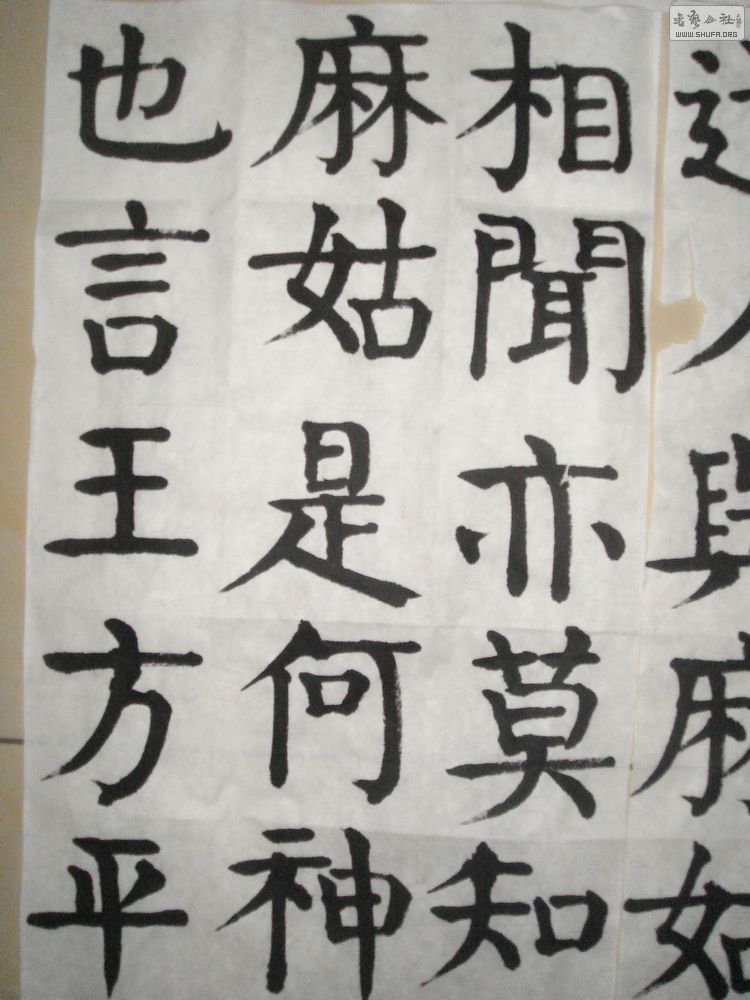 遣人與麻姑
相聞亦莫知
麻姑是何神
也言王方平
書藝公社
WWW.SHUFA.ORG